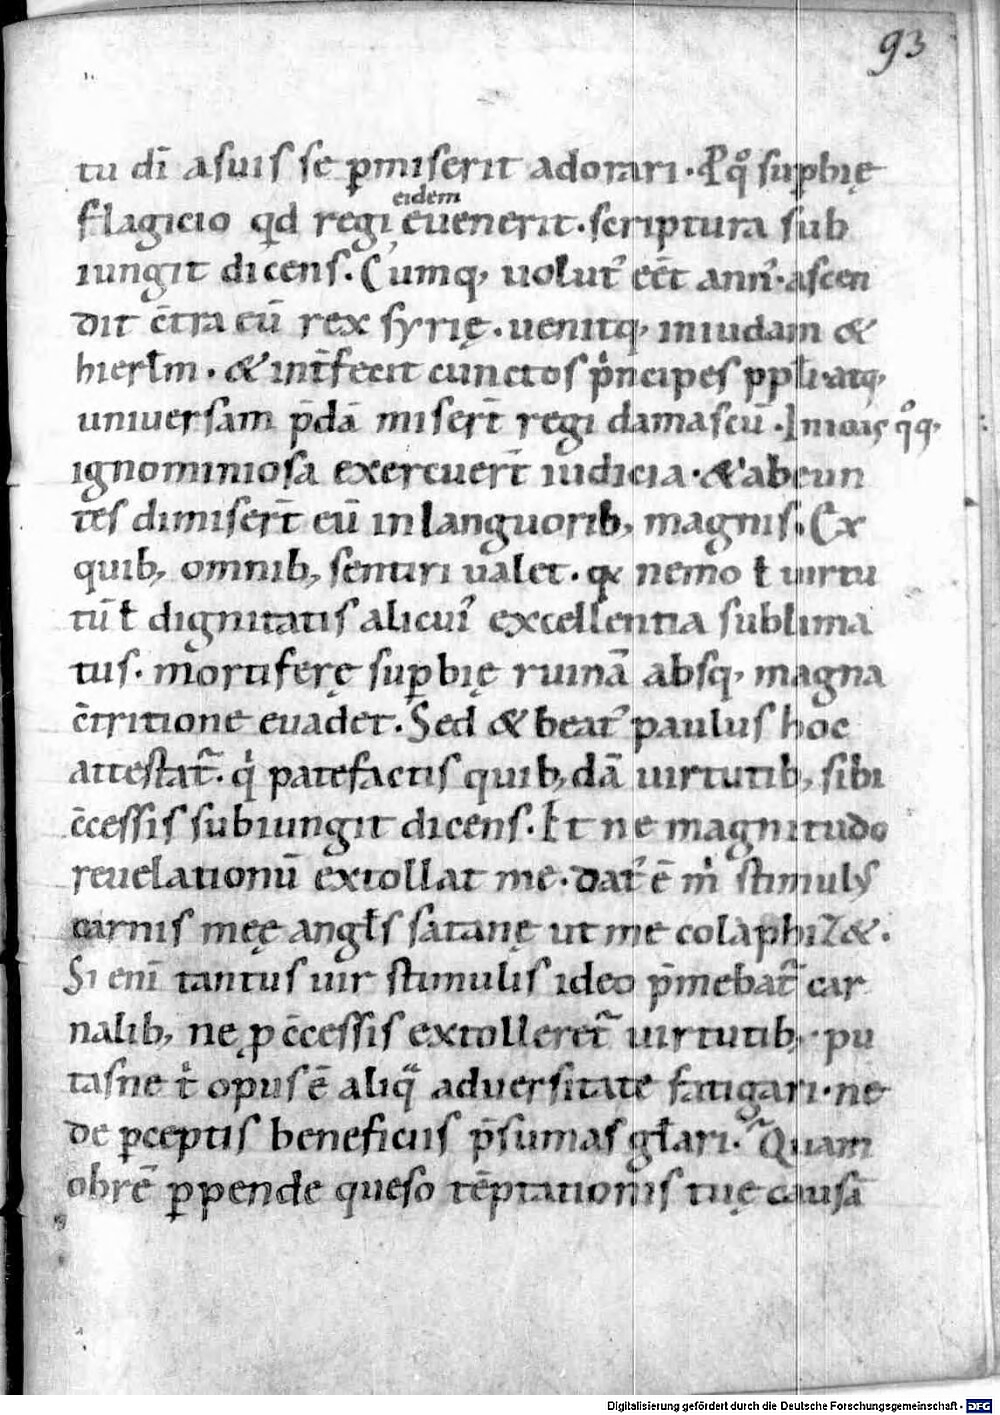 93
tu dī a suis se ꝑmiserit adorari. P qͦ suꝑbię
eidem
flagicio qd regi euenerit. scriptura sub
iungit dicens. Cumq, uolut᾽ eēt ann᾽. ascen
dit c̄tra eū rex syrię. uenitq, in iudam &
hierłm. & int̄fecit cunctos pͥncipes ppłi. atq,
uniuersam p̄dā misert̄ regi damascū. In ioas qͦq,
ignominiosa exercuert̄ iudicia. & abeun
tes dimisert̄ eū in languorib, magnis. Ex
quib, omnib, sentiri ualet. qꝛ nemo ł uirtu
tū ł dignitatis alicui᾽ excellentia sublima
tus. mortiferę suꝑbię ruinā absq, magna
c̄tritione euadet. Sed & beat᾽ paulus hoc
attestat᷑. qͥ patefactis quib,dā uirtutib, sibi
c̄cessis subiungit dicens. Et ne magnitudo
reuelationū extollat me. dat᾽ ē mͥ stimulus
carnis meę angłs satanę ut me colaphiz&.
Si enī tantus uir stimulis ideo p̄mebat᷑ car
nalib, ne ꝑ c̄cessis extolleret᷑ uirtutib,. pu
tasne tͥ opus ē aliqͣ aduersitate fatigari. ne
de ꝑceptis beneficiis p̄sumas głari. Quam
obrē ꝑpende queso tēptationis tuę causā
Digitalisierung gefördert durch die Deutsche Forschungsgemeinschaft - DFG